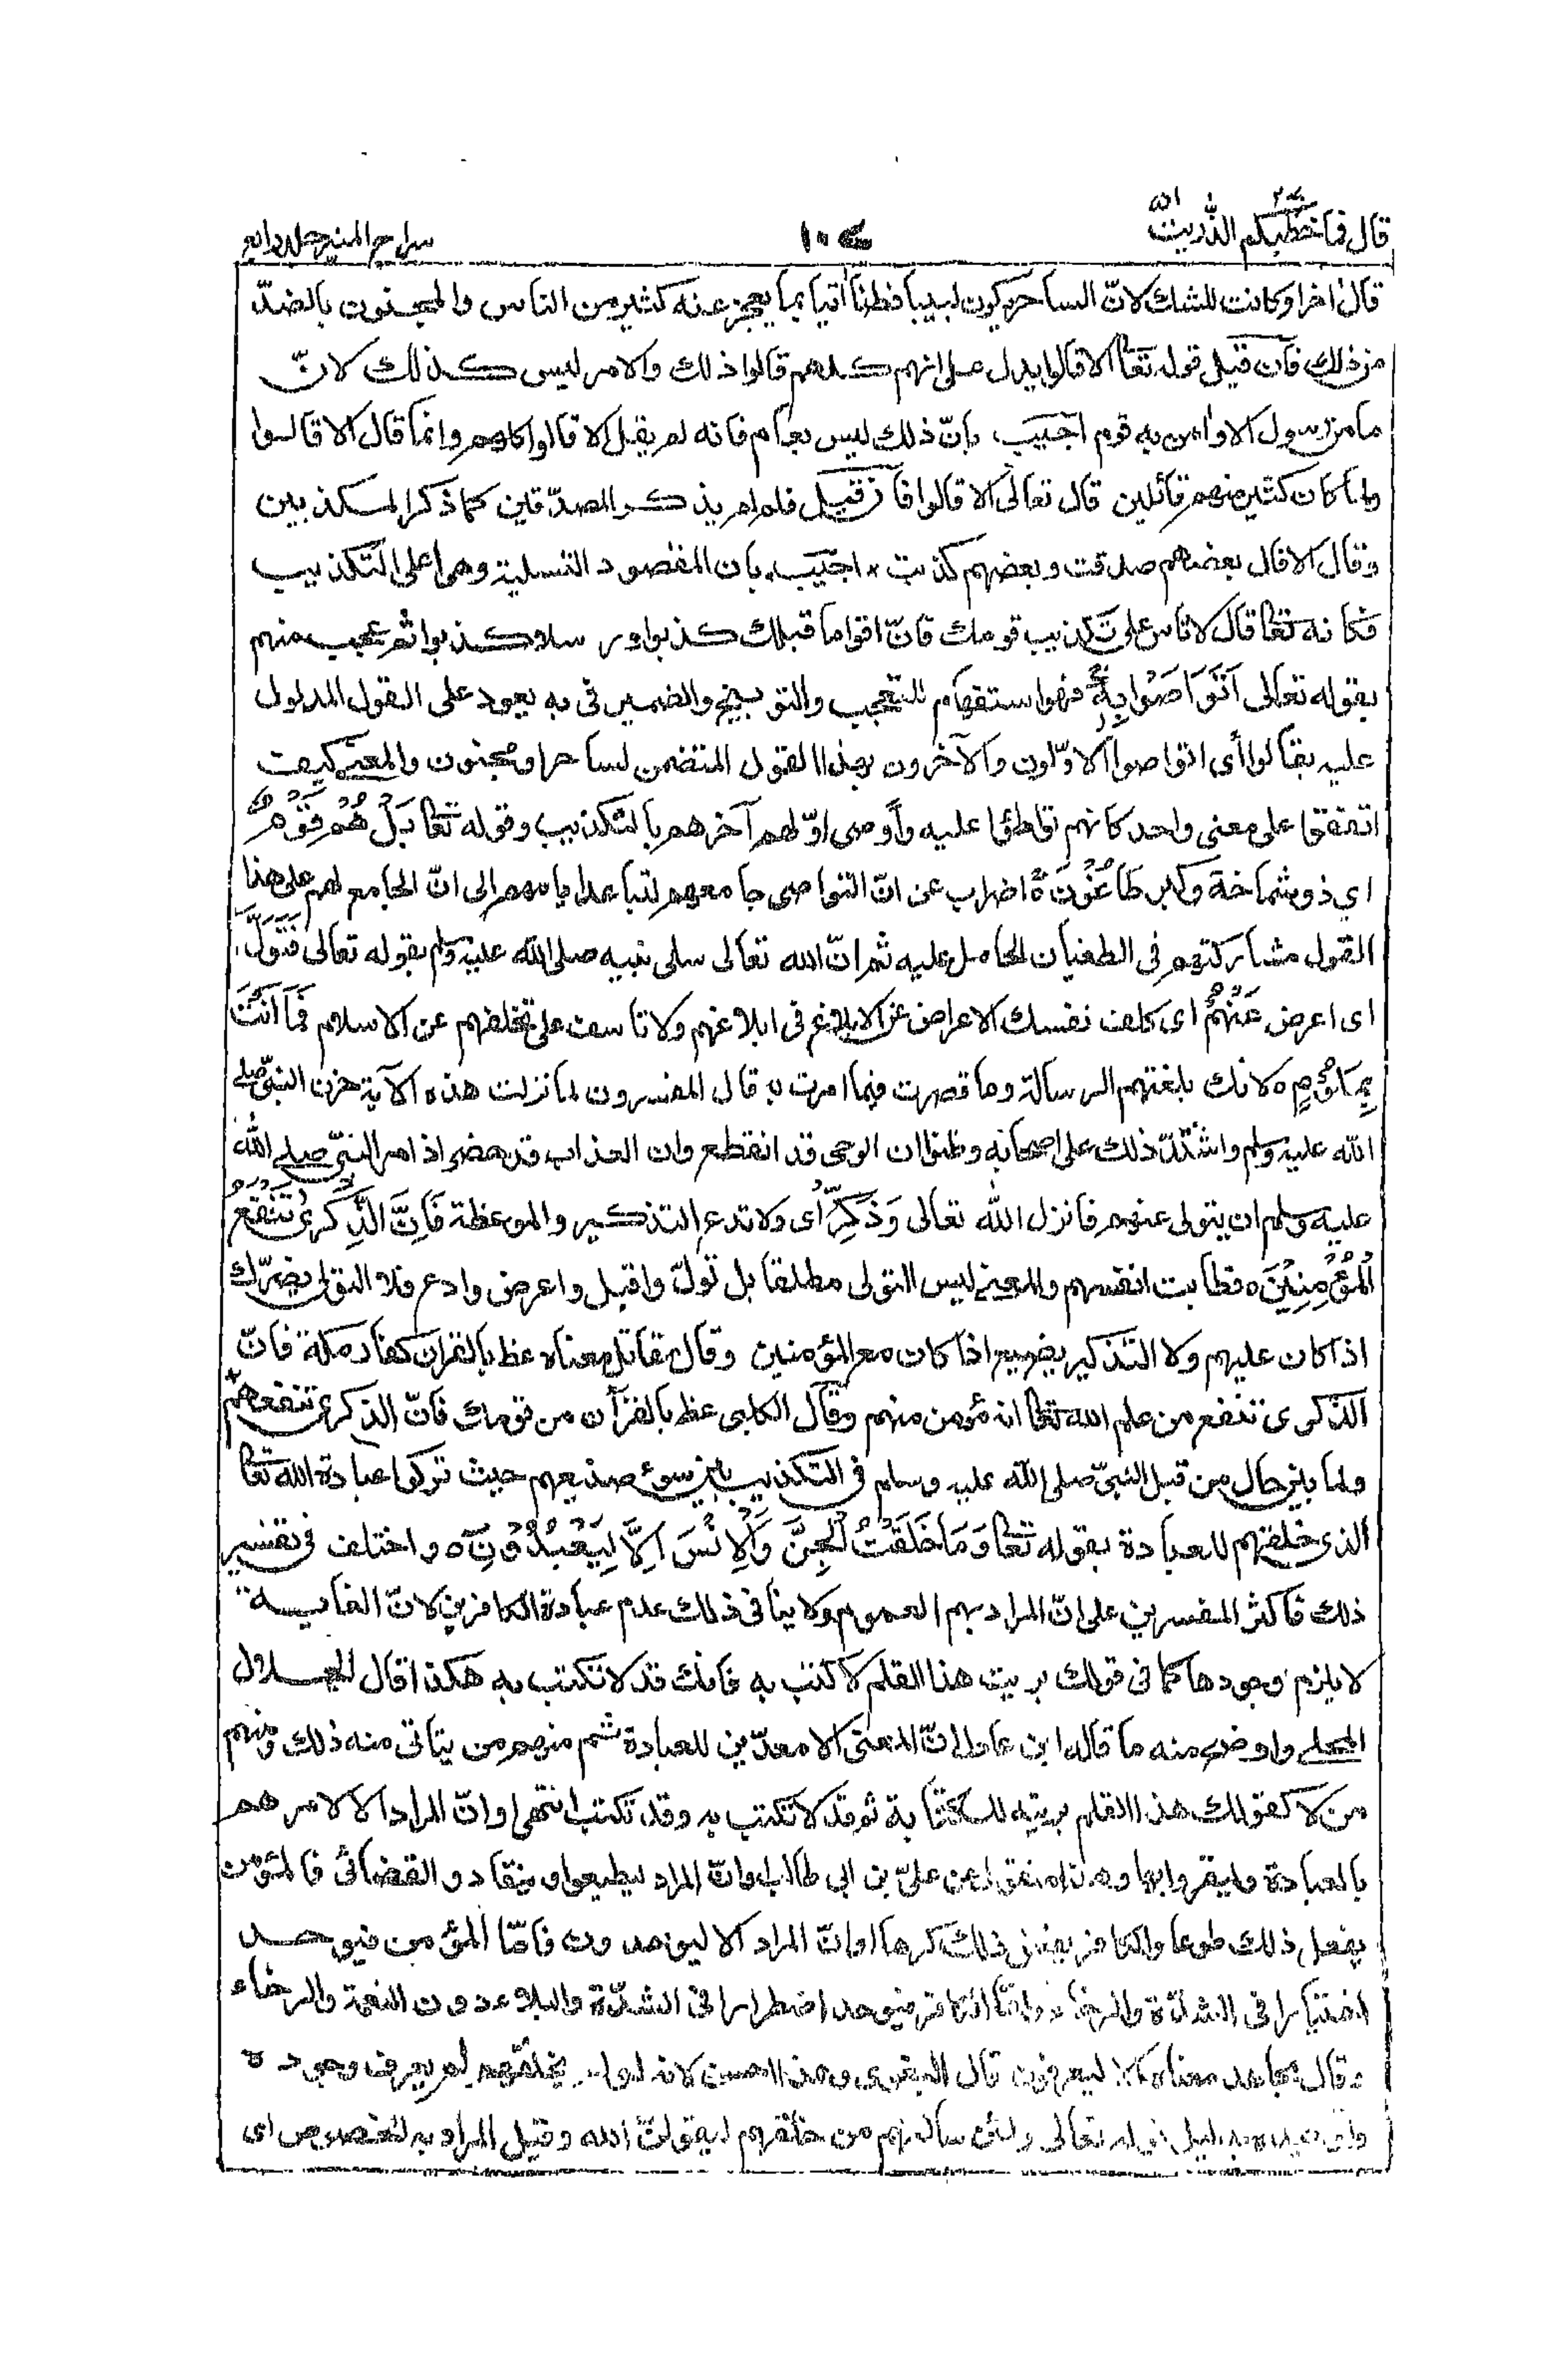 قال فما خطبكم ٢٧ الذّريت ٥١
١٠٧
سراج المنير جلد رابع
قال اخرا وكانت للشك لانّ الساحر يكون لبيبا فطنا اتيا بما يعجز عنه كثير من الناس والمجنون بالضدّ
من ذلك فان قيل قوله تعا الا قالوا يدل على انهم كلهم قالوا ذلك والامر ليس كذلك لانّ
ما من رسول الا وامن به قوم اجيب بانّ ذلك ليس بعام فانه لم يقل الا قالوا كلهم وانما قال الا قالوا
ولما كان كثير منهم قائلين قال تعالى الا قالوا فان قيل فلم لم يذكر المصدّقين كما ذكر المكذبين
وقال الا قال بعضهم صدقت وبعضهم كذبت اجيب بان المقصود التسلية وهى على التكذيب
فكانه تعا قال لا تاس على تكذيب قومك فانّ اقواما قبلك كذبوا ورسلا كذبوا ثم عجب منهم
بقوله تعالى اَتَوَاصَوْا بِهٖ فهو استفهام للتعجب والتوبيخ والضمير فى به يعود على القول المدلول
عليه بقالوا أى اتواصوا الاوّلون والآخرون بهذا القول المتضمن لساحر او مجنون والمعنى كيف
اتفقوا على معنى واحد كانهم تواطئوا عليه وأوصى اوّلهم آخرهم بالتكذيب وقوله تعا بَلْ هُمْ قَوْمٌ
اي ذو شماخة وكبر طَاغُوْنَ ٥ اضراب عن انّ التواصى جامعهم لتباعد ايامهم الى انّ الجامع لهم على هذا
القول مشاركتهم فى الطغيان الحامل عليه ثم انّ الله تعالى سلى نبيه صلى الله عليه وسلم بقوله تعالى فَتَوَلَّ
اى اعرض عَنْهُمْ اى كلف نفسك الاعراض عن الابلاغ فى ابلاغهم ولا تاسف على تخلفهم عن الاسلام فَمَا اَنْتَ
بِمَلُوْمٍ ٥ لانك بلغتهم الرسالة وما قصرت فيما امرت به قال المفسرون لما نزلت هذه الآية حزن النبىّ صلى
الله عليه وسلم واشتدّ ذلك على اصحابه وظنوا ان الوحى قد انقطع وان العذاب قد حضر اذ امر النبىّ صلى الله
عليه وسلم ان يتولى عنهم فانزل الله تعالى وَذَكِّرْ أى ولا تدع التذكير والموعظة فَاِنَّ الذِّكْرٰى تَنْفَعُ
الْمُؤْمِنِيْنَ ٥ فطابت انفسهم والمعنى ليس التولى مطلقا بل تولّ واقبل واعرض وادع فلا التولى يضرّك
اذا كان عليهم ولا التذكير يضيع اذا كان مع المؤمنين وقال مقاتل معناه عظ بالقران كفار مكة فانّ
الذكرى تنفع من علم الله تعا انه مؤمن منهم وقال الكلبى عظ بالقرآن من قومك فانّ الذكرى تنفعهم
ولما بين حال من قبل النبىّ صلى الله عليه وسلم فى التكذيب بين سوء صنيعهم حيث تركوا عبادة الله تعا
الذى خلقهم للعبادة بقوله تعا وَمَا خَلَقْتُ الْجِنَّ وَالْاِنْسَ اِلَّا لِيَعْبُدُوْنِ ٥ واختلف فى تفسير
ذلك فاكثر المفسرين على انّ المراد بهم العموم ولا ينافى ذلك عدم عبادة الكافرين لانّ الغاية
لا يلزم وجودها كما فى قولك بريت هذا القلم لاكتب به فانك قد لا تكتب به هكذا قال الجلال
المحلى واوضح منه ما قاله ابن عادل انّ المعنى الا معدّين للعبادة ثم منهم من يتاتى منه ذلك ومنهم
من لا كقولك هذا القلم بريته للكتابة ثم قد لا تكتب به وقد تكتب انتهى او انّ المراد الا لامرهم
بالعبادة وليقروا بها وهذا منقول عن علىّ بن ابى طالب او انّ المراد ليطيعوا وينقادوا لقضائى فالمؤمن
يفعل ذلك طوعا والكافر يفعل ذلك كرها او انّ المراد الا ليوحدون فامّا المؤمن فيوحد
اختيارا فى الشدّة والرخاء وامّا الكافر فيوحد اضطرارا فى الشدّة والبلاء دون النعمة والرخاء
وقال مجاهد معناه الا ليعرفون قال البغوى وهذا احسن لانه لو لم يخلقهم لم يعرف وجوده
وتوحيده بدليل قوله تعالى ولئن سالتهم من خلقهم ليقولنّ الله وقيل المراد به الخصوص اى